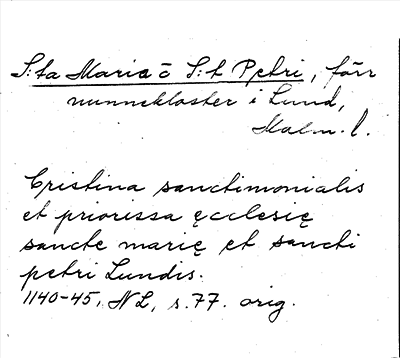 S:ta Maria o S:t Petri, förr
nunnekloster i Lund,
Malm. l.
Cristina sanctimonialis
et priorissa ęcclesię
sancte marię et sancti
petri Lundis.
1140-45, NL, s. 77. orig.